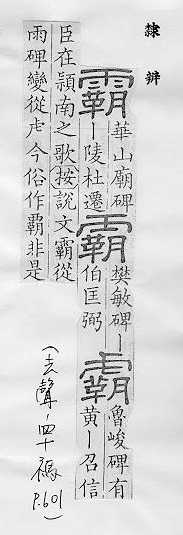 隸辨
霸
華山廟碑
丨陵杜遷
霸
樊敏碑丨
伯匡弼
魯峻碑有
黃丨召信
臣在潁南之歌按說文霸從
雨碑變從虍今俗作霸非是
(去聲，四十禡
P.601)